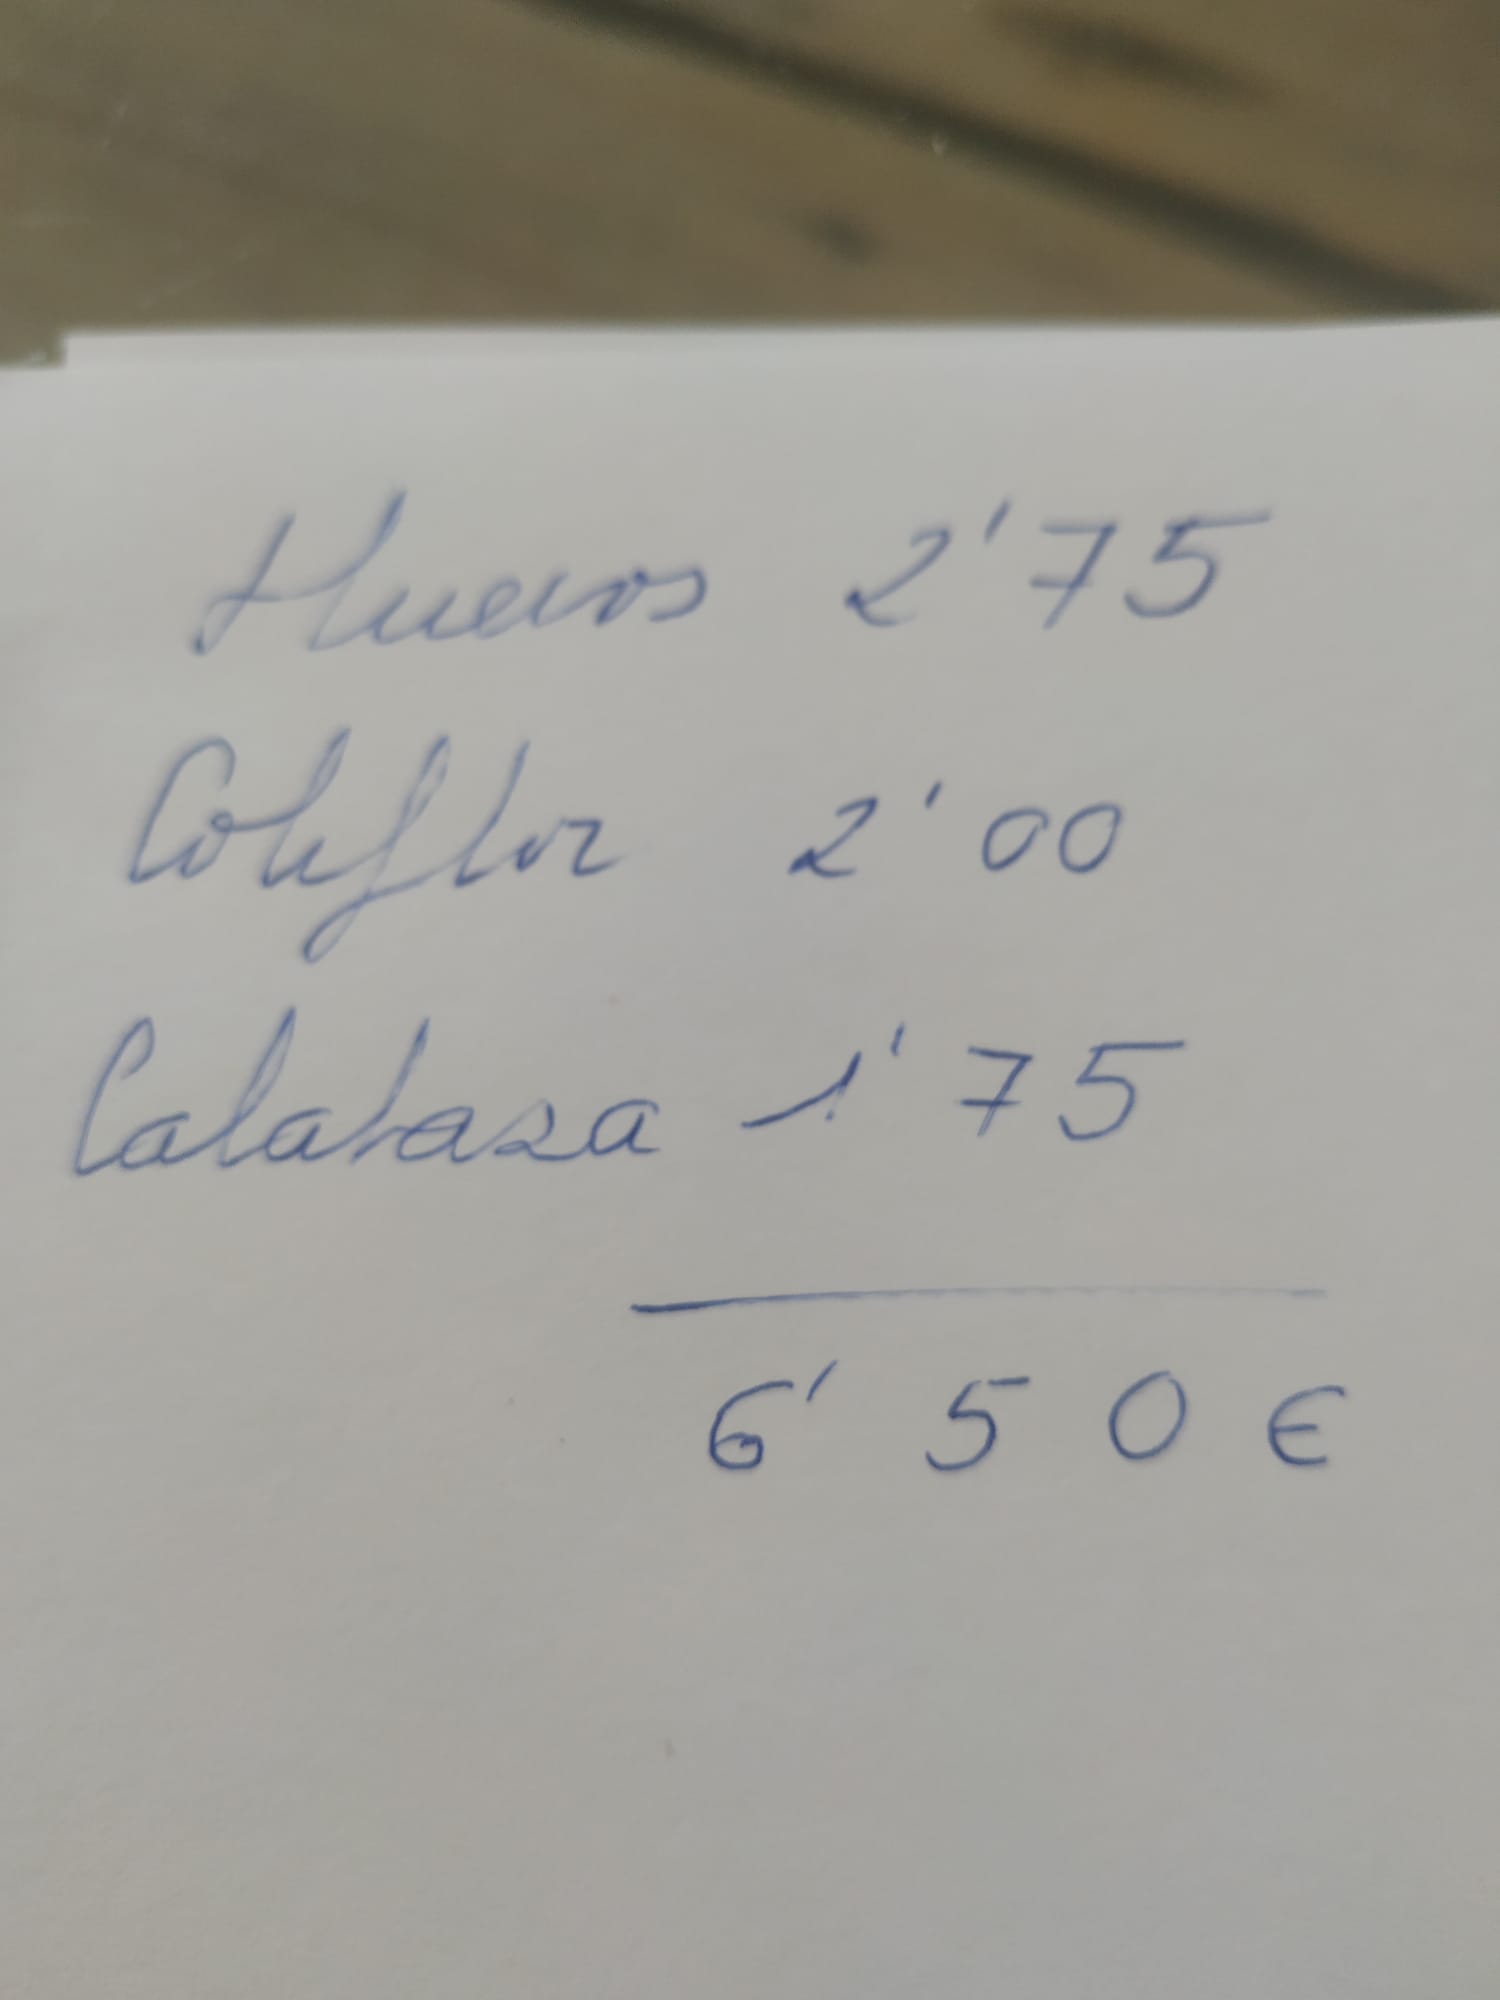 Huevos 2'75
Coliflor 2'00
Calabaza 1'75
6'50€